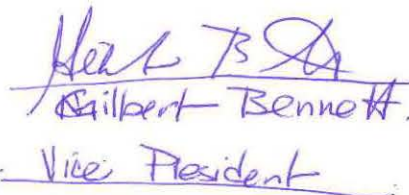 Gilbert Bennett.
Vice President